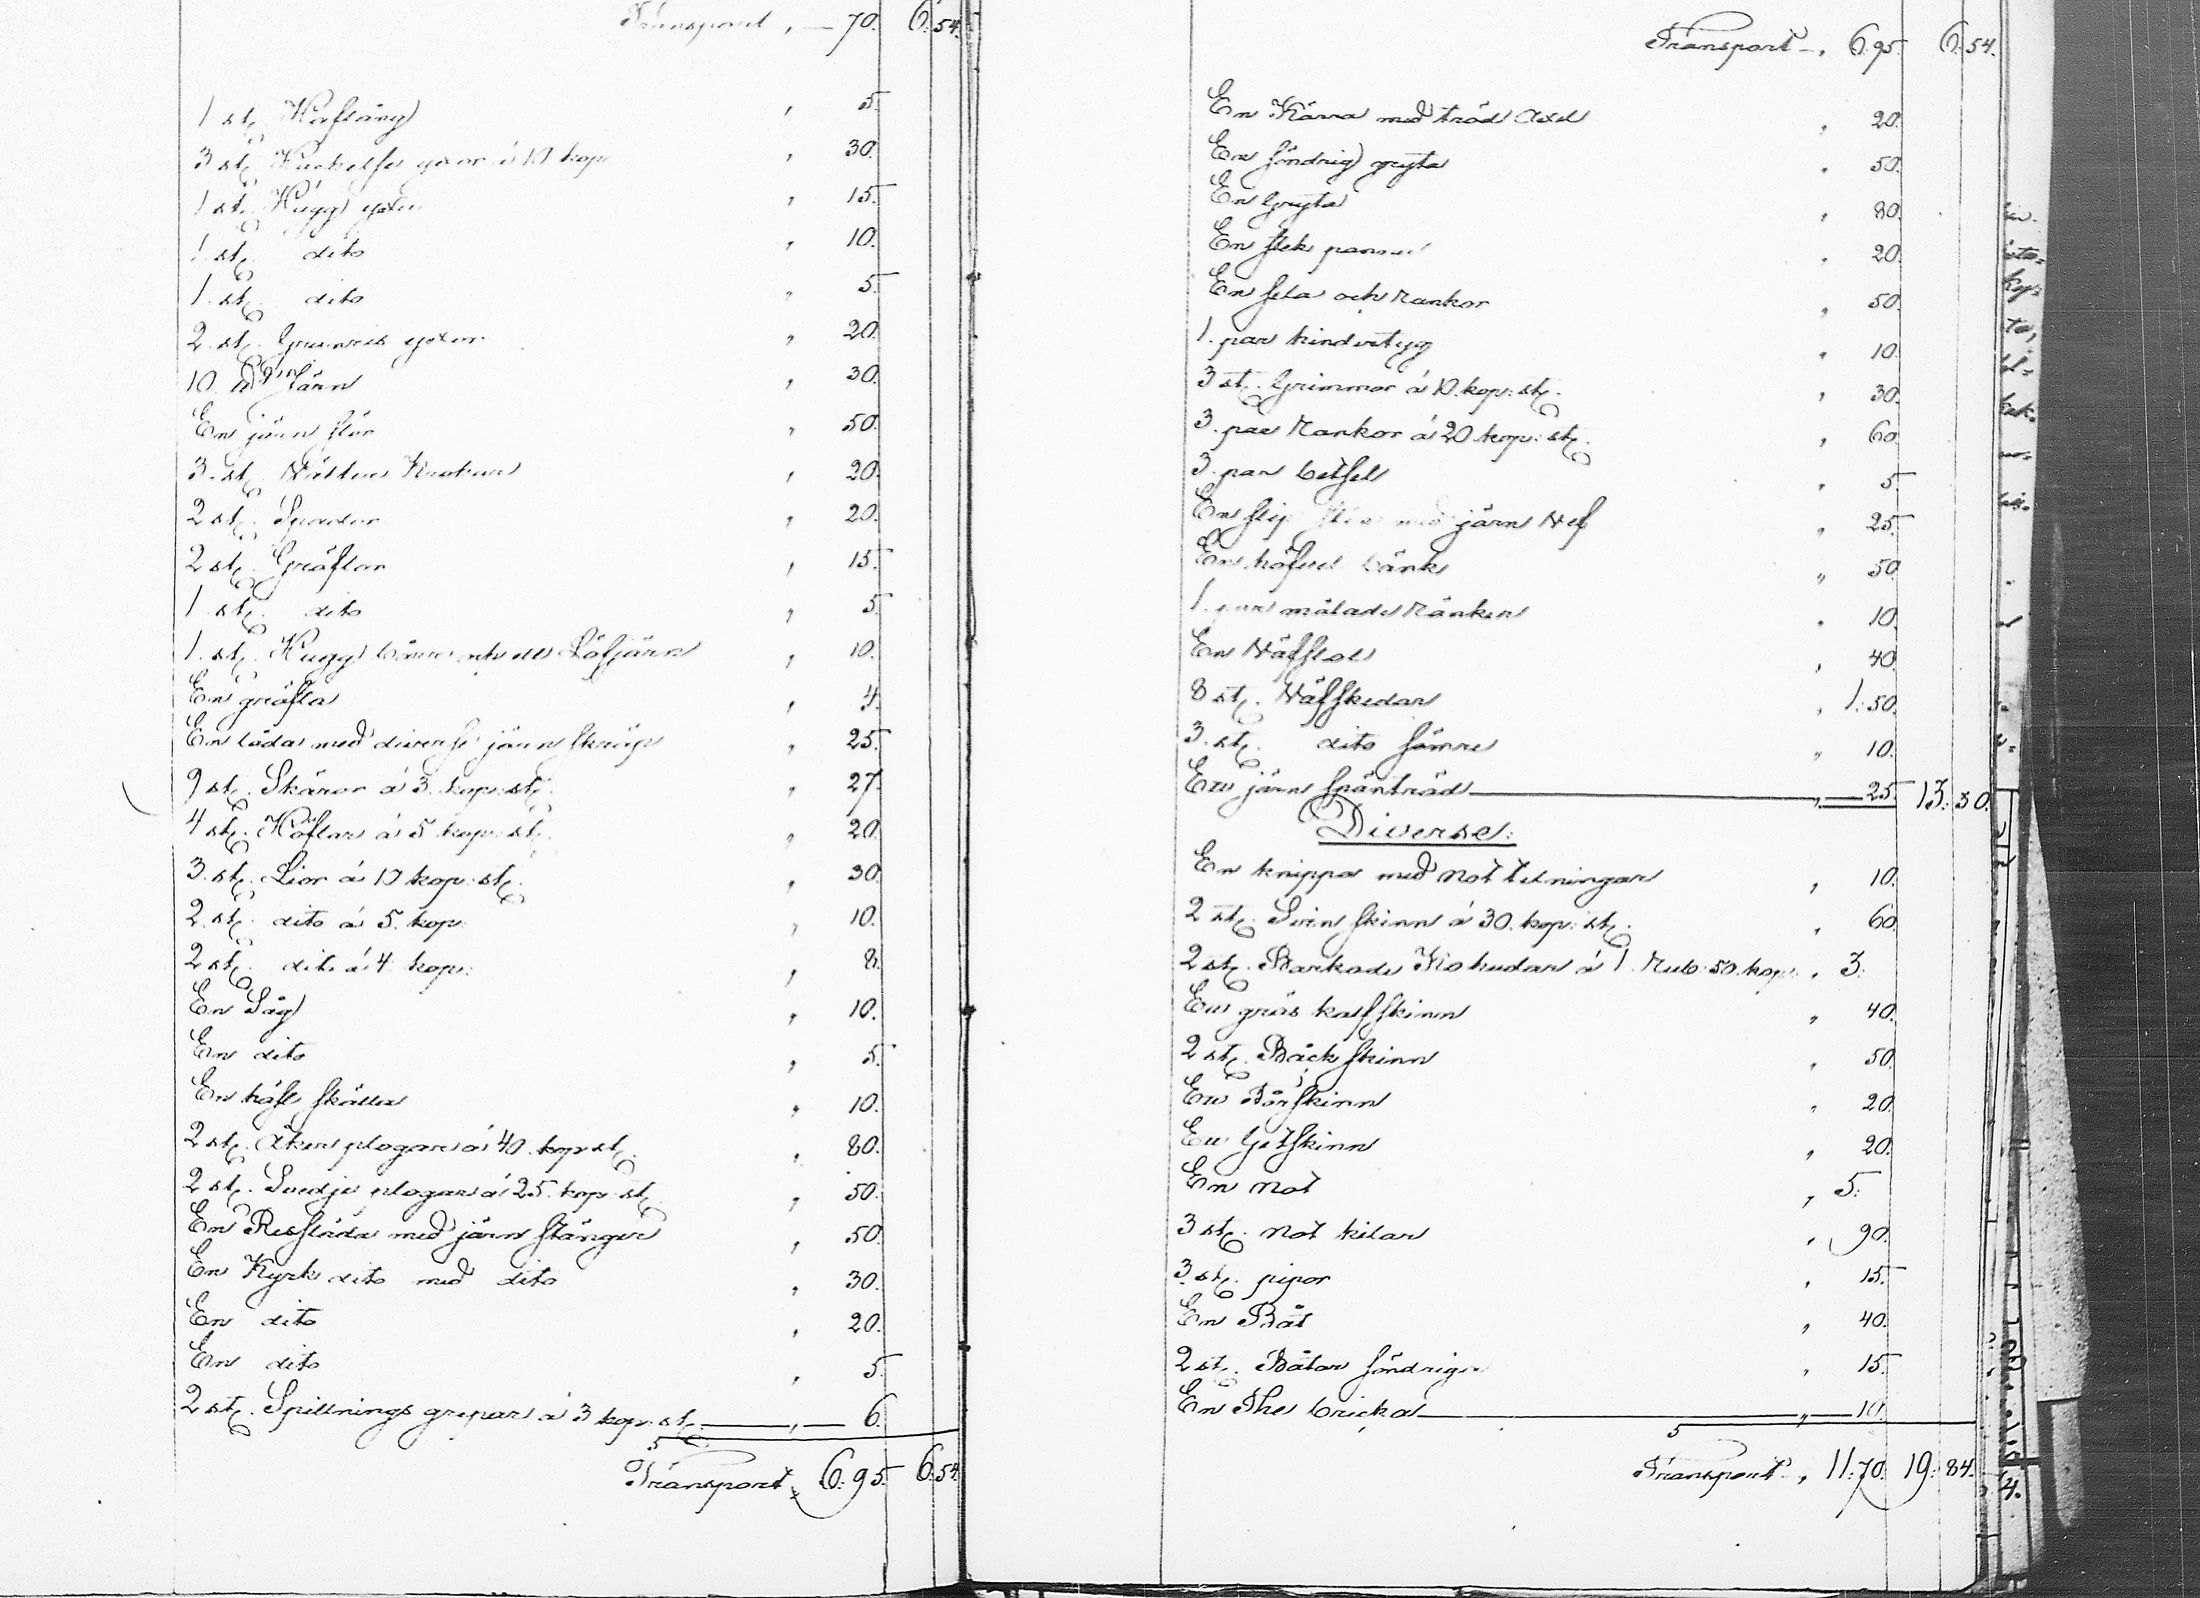 Transport , — 70. 6. 54.
1 st. Håftång , 5.
3 st. yxor á 10 kop , 30.
1 st. Hugg yxa , 15.
1 st. dito , 10.
1. st. dito , 5.
2. st. yxor , 20.
10. ℔ Järn , 30.
En järn slör , 50.
3. st. Nättua Krokar , 20.
2 st. Spador , 20.
2 st. Gräftor , 15.
1. st. dito , 5.
1. st. Hugg och ett Löfjärn , 10.
En gräfta , 4.
En låda med diverse järn skräp , 25.
9 st. Skäror á 3. kop: st. , 27.
4 st. Höflar á 5 kop: st. , 20.
3. st. Lior á 10 kop: st. , 30.
2. st. dito á 5. kop: , 10.
2 st. dito á 4 kop: , 8.
En Såg , 10.
En dito , 5.
En häst skälla , 10.
2 st. Åker plogar á 40. kop st. , 80.
2 st. Svedje plogar á 25. kop: st. , 50.
En Ressläda med järn stänger , 50.
En Kyrk dito med dito , 30.
En dito , 20.
En dito , 5.
2 st. Spillnings grepar á 3 kop: st. — , — 6.
Transport , 6. 95. 6. 54.
Transport , 6. 95. 6. 54.
En Kärra med träd Axel , 20.
En söndrig gryta , 50.
En Gryta , 80.
En stek panna , 20.
En sela och Rankor , 50.
1. par hindertyg , 10.
3 st. Grimmor á 10. kop: st. , 30.
3. par Rankor á 20 kop: st. , 60.
3. par betsel , 5.
En slip med järn Nef , 25.
En höfvel bänk , 50.
1. par målade Ränker , 10.
En Näfstol , 40.
8 st. Näfskedar , 1: 50.
3. st. dito sämre , 10.
En järn spänträd — , — 25. 13: 30.
Diverse:
En knippa med not telningar , 10.
2 st. Svin skinn á 30. kop: st. , 60.
2 st. Barkade Kohudar á 1. Rub: 50. kop: , 3:
En gräs kalfskinn , 40.
2 st. Bäck skinn , 50.
En Fårskinn , 20.
En Getskinn , 20.
En Not , 5:
3 st. Not kilar , 90.
3 st. pipor , 15.
En Båt , 40.
2 st. Båtar söndriga , 15.
En The bricka — , — 10.
Transport , 11: 70. 19: 84.